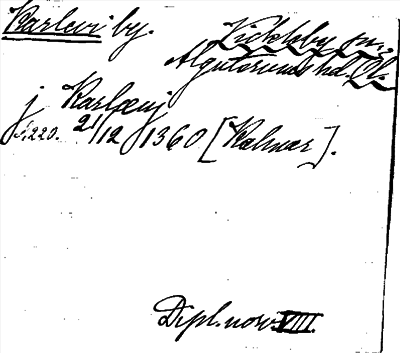 Karlevi by. Vickleby sn.
Algutsrums hd. Öl.
j Karlæuj
s. 220. 21/12 1360 [Kalmar].
Dipl. norv. VIII.